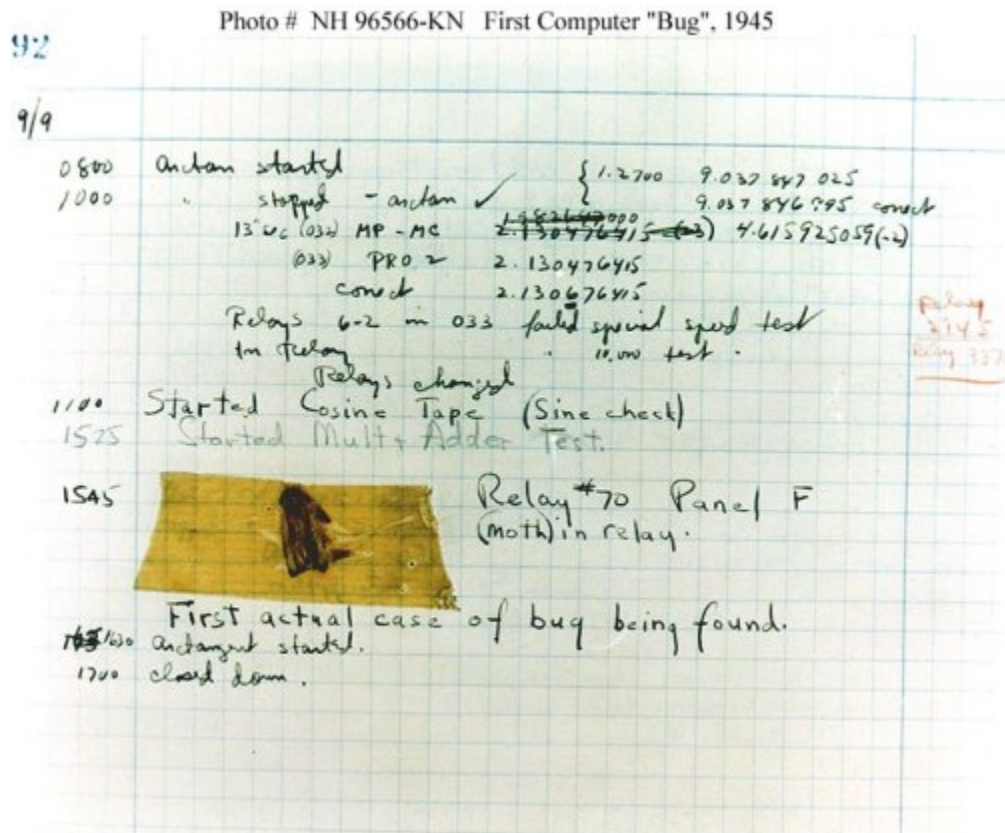 Photo # NH 96566-KN First Computer "Bug", 1945
92
9/9
0800 antan started
1000 " stopped - antan ✓ { 1.2700 9.037 847 025
9.037 846 995 conect
13"uc (032) MP - MC 2.130476415 (-3) 4.615925059(-2)
(033) PRO 2 2.130476415
conect 2.130676415
Relays 6-2 in 033 failed special speed test
In Relay " 10.000 test .
Relays changed
Relay
3145
Relay 337
1100 Started Cosine Tape (Sine check)
1525 Started Mult + Adder Test.
1545 Relay #70 Panel F
(moth) in relay.
First actual case of bug being found.
1630 antangent started.
1700 closed down .